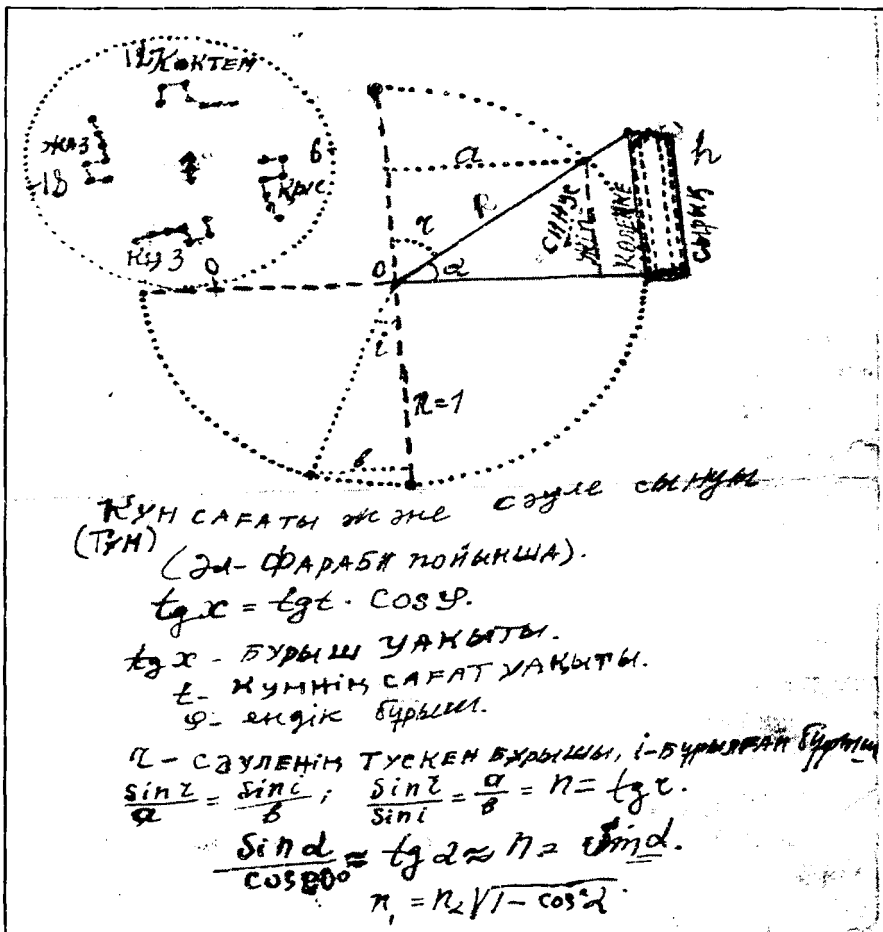 12 Көктем
жаз
18
6
қыс
күз
0
a
R
h
r
синус
жіп
көлеңке
сырық
0
α
i
R=1
в
Күн сағаты және сәуле сынуы
(Түн)
(Әл-Фараби пойынша).
tg x = tgt · cosφ.
tg x - бұрыш уақыты.
t- күннің сағат уақыты.
φ- ендік бұрыш.
r - сәуленің түскен бұрышы, i-бұрылған бұрыш
sin r / a = sin i / в ; sin r / sin i = a / в = n = tg r.
sin α / cos ≈ tg α ≈ n = sin α.
n₁ = n₂√1 - cos²α.